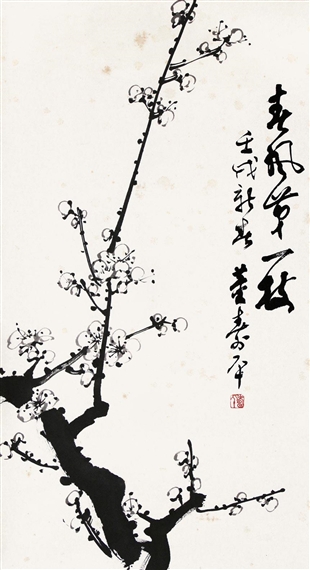 春风第一枝
壬戌新春
董寿平